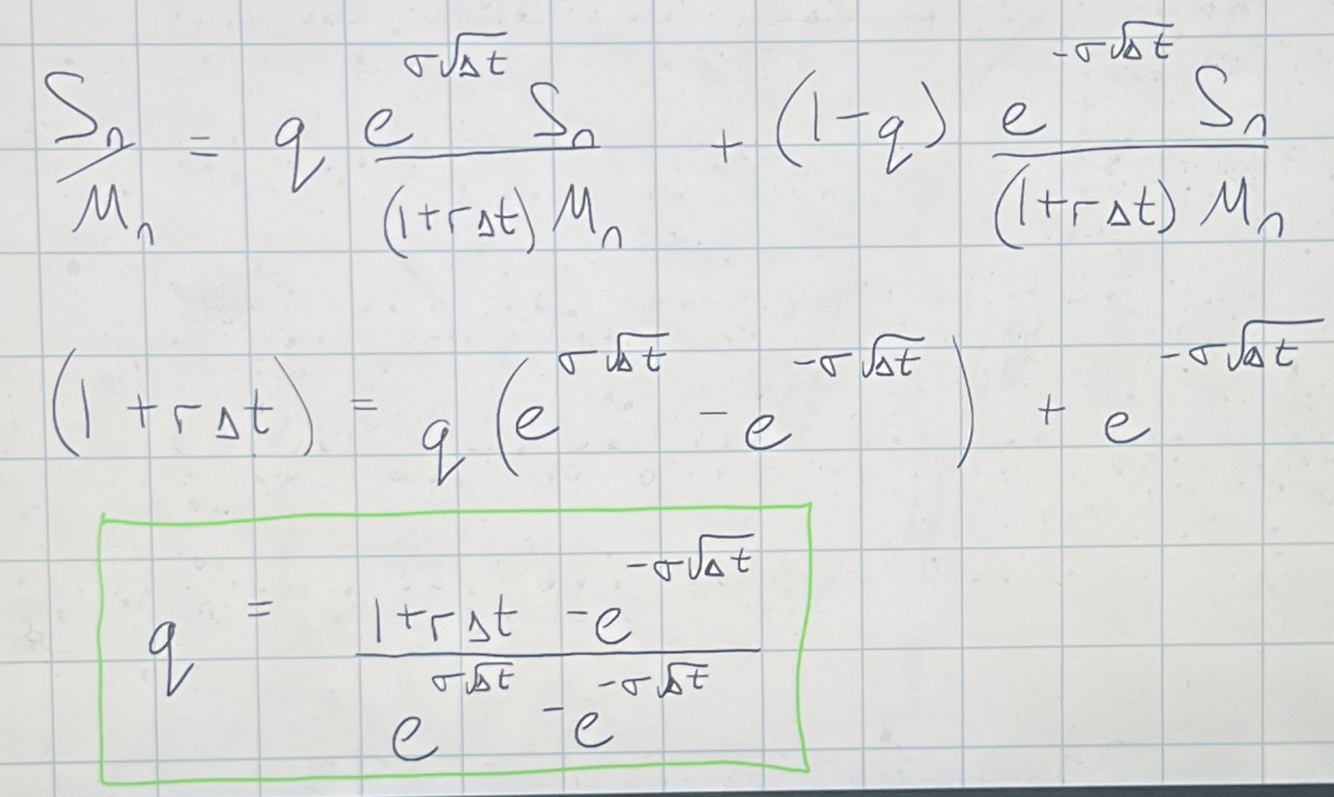 $\frac{S_n}{M_n} = q \frac{e^{\sigma\sqrt{\Delta t}} S_n}{(1+r\Delta t) M_n} + (1-q) \frac{e^{-\sigma\sqrt{\Delta t}} S_n}{(1+r\Delta t) M_n}$
$(1+r\Delta t) = q \left(e^{\sigma\sqrt{\Delta t}} - e^{-\sigma\sqrt{\Delta t}}\right) + e^{-\sigma\sqrt{\Delta t}}$
$q = \frac{1+r\Delta t - e^{-\sigma\sqrt{\Delta t}}}{e^{\sigma\sqrt{\Delta t}} - e^{-\sigma\sqrt{\Delta t}}}$